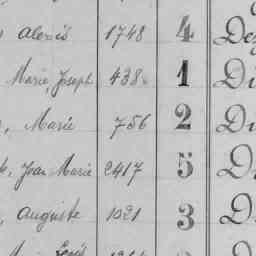 Alexis 1748 4
Marie, Joseph 438 1
Marie 756 2
Jean Marie 2417 5
Auguste 1021 3